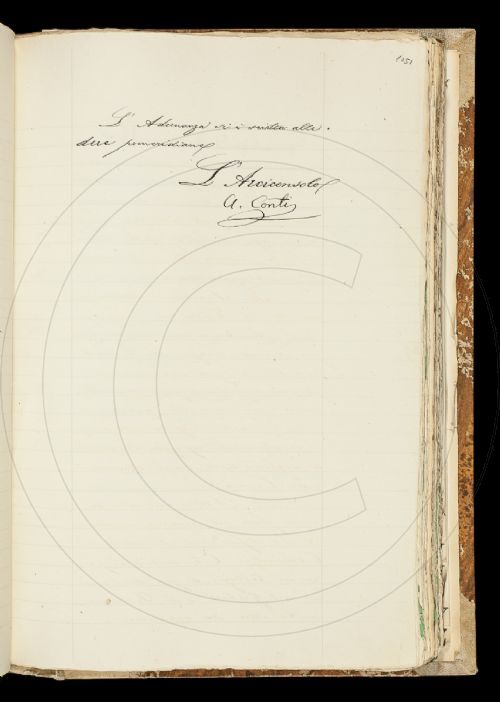 1051
L'Adunanza si è sciolta alle
due pomeridiane
L'Arciconsolo
A. Conti